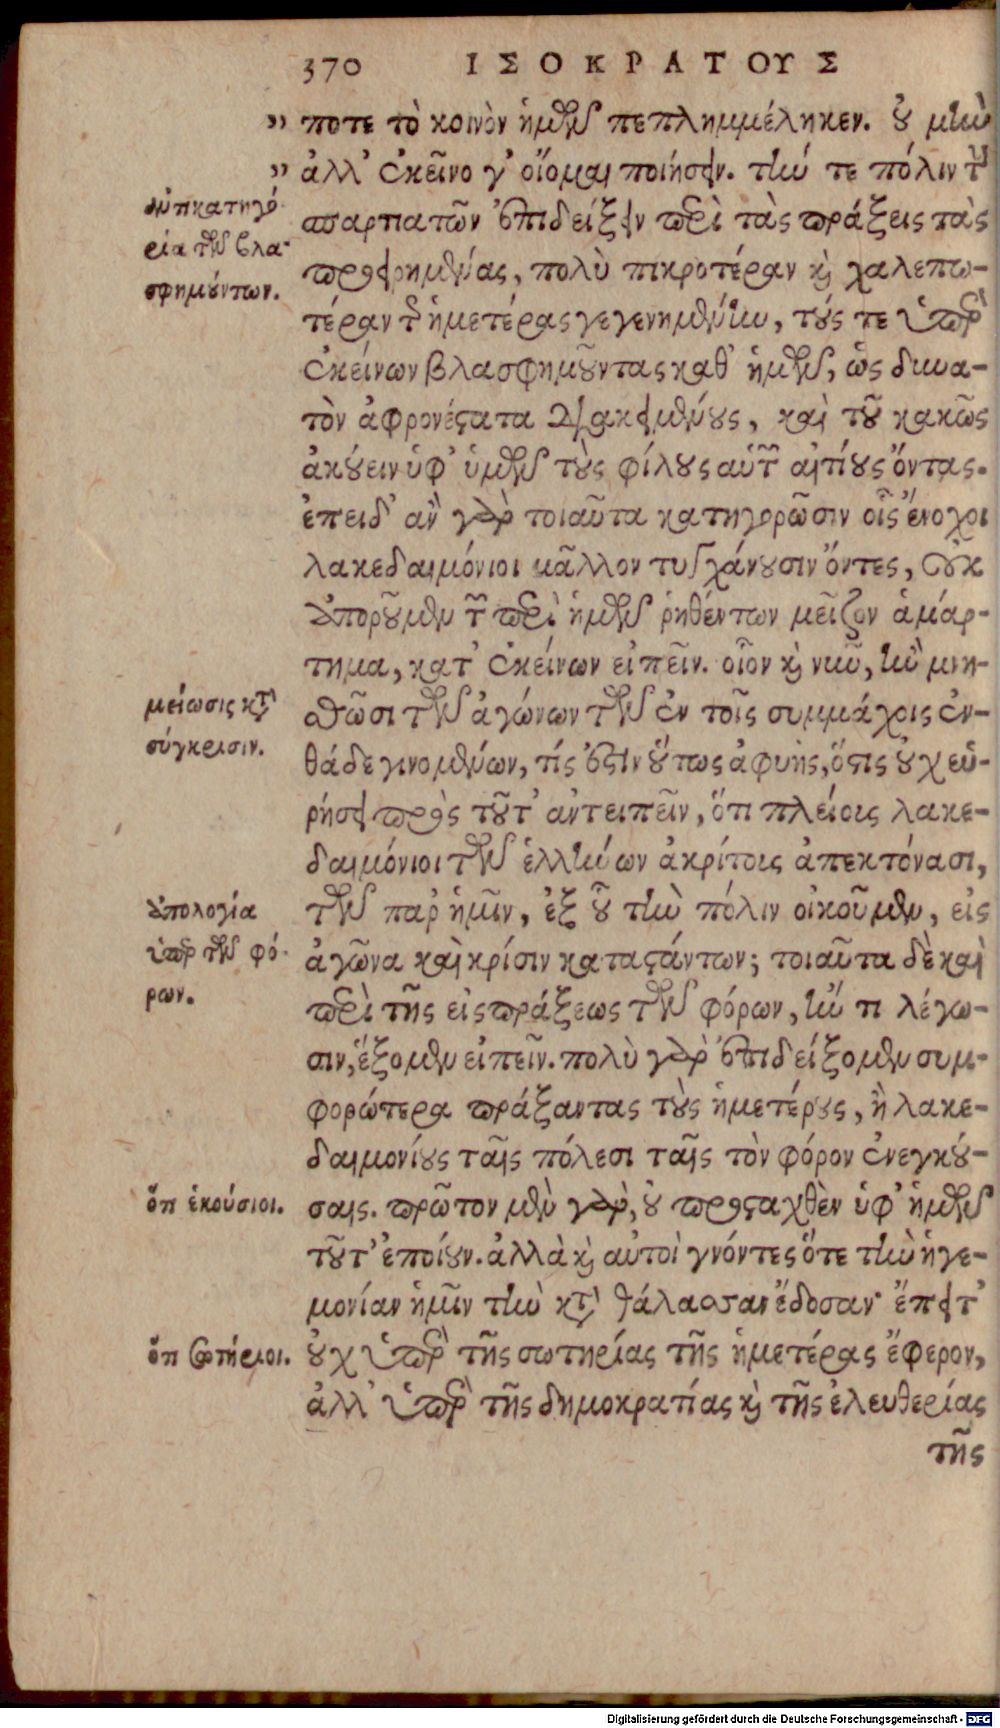 370 ΙΣΟΚΡΑΤΟΥΣ
„ ποτε τὸ κοινὸν ἡμῶν πεπλημμέληκεν. οὐ μὴν
„ ἀλλ' ἐκεῖνο γ' οἴομαι ποιήσειν. τήν τε πόλιν τῶν
ἀντικατηγο-
ρία τῶν βλα-
σφημούντων.
σπαρτιατῶν ἐπιδείξειν περὶ τὰς πράξεις τὰς
προειρημένας, πολὺ πικροτέραν καὶ χαλεπω-
τέραν τῆς ἡμετέρας γεγενημένην, τούς τε ὑπὲρ
ἐκείνων βλασφημοῦντας καθ' ἡμῶν, ὡς δυνα-
τὸν ἀφρονέστατα διακειμένους, καὶ τοῦ κακῶς
ἀκούειν ὑφ' ὑμῶν τοὺς φίλους αὐτῶν αἰτίους ὄντας.
ἐπειδ' ἂν γὰρ τοιαῦτα κατηγορῶσιν οἷς ἔνοχοι
λακεδαιμόνιοι μᾶλλον τυγχάνουσιν ὄντες, οὐκ
ἀποροῦμεν τῶν περὶ ἡμῶν ῥηθέντων μεῖζον ἁμάρ-
τημα, κατ' ἐκείνων εἰπεῖν. οἷον καὶ νῦν, ἢν μνη-
μείωσις κατὰ
σύγκρισιν.
σθῶσι τῶν ἀγώνων τῶν ἐν τοῖς συμμάχοις ἐν-
θάδε γινομένων, τίς ἐστιν οὕτως ἀφυὴς, ὅστις οὐχ εὑ-
ρήσει πρὸς τοῦτ' ἀντειπεῖν, ὅτι πλείοις λακε-
δαιμόνιοι τῶν ἑλλήνων ἀκρίτοις ἀπεκτόνασι,
ἀπολογία
ὑπὲρ τῶν φό-
ρων.
τῶν παρ' ἡμῖν, ἐξ οὗ τὴν πόλιν οἰκοῦμεν, εἰς
ἀγῶνα καὶ κρίσιν καταστάντων; τοιαῦτα δὲ καὶ
περὶ τῆς εἰσπράξεως τῶν φόρων, ἤν τι λέγω-
σιν, ἕξομεν εἰπεῖν. πολὺ γὰρ ἐπιδείξομεν συμ-
φορώτερα πράξαντας τοὺς ἡμετέρους, ἢ λακε-
δαιμονίους ταῖς πόλεσι ταῖς τὸν φόρον ἐνεγκού-
ὅτι ἑκούσιοι.
σαις. πρῶτον μὲν γὰρ, οὐ προσταχθὲν ὑφ' ἡμῶν
τοῦτ' ἐποίουν. ἀλλὰ καὶ αὐτοὶ γνόντες ὅτε τὴν ἡγε-
μονίαν ἡμῖν τὴν κατὰ θάλασσαν ἔδοσαν· ἔπειτ'
ὅτι σωτήριοι.
οὐχ ὑπὲρ τῆς σωτηρίας τῆς ἡμετέρας ἔφερον,
ἀλλ' ὑπὲρ τῆς δημοκρατίας καὶ τῆς ἐλευθερίας
τῆς
Digitalisierung gefördert durch die Deutsche Forschungsgemeinschaft - DFG